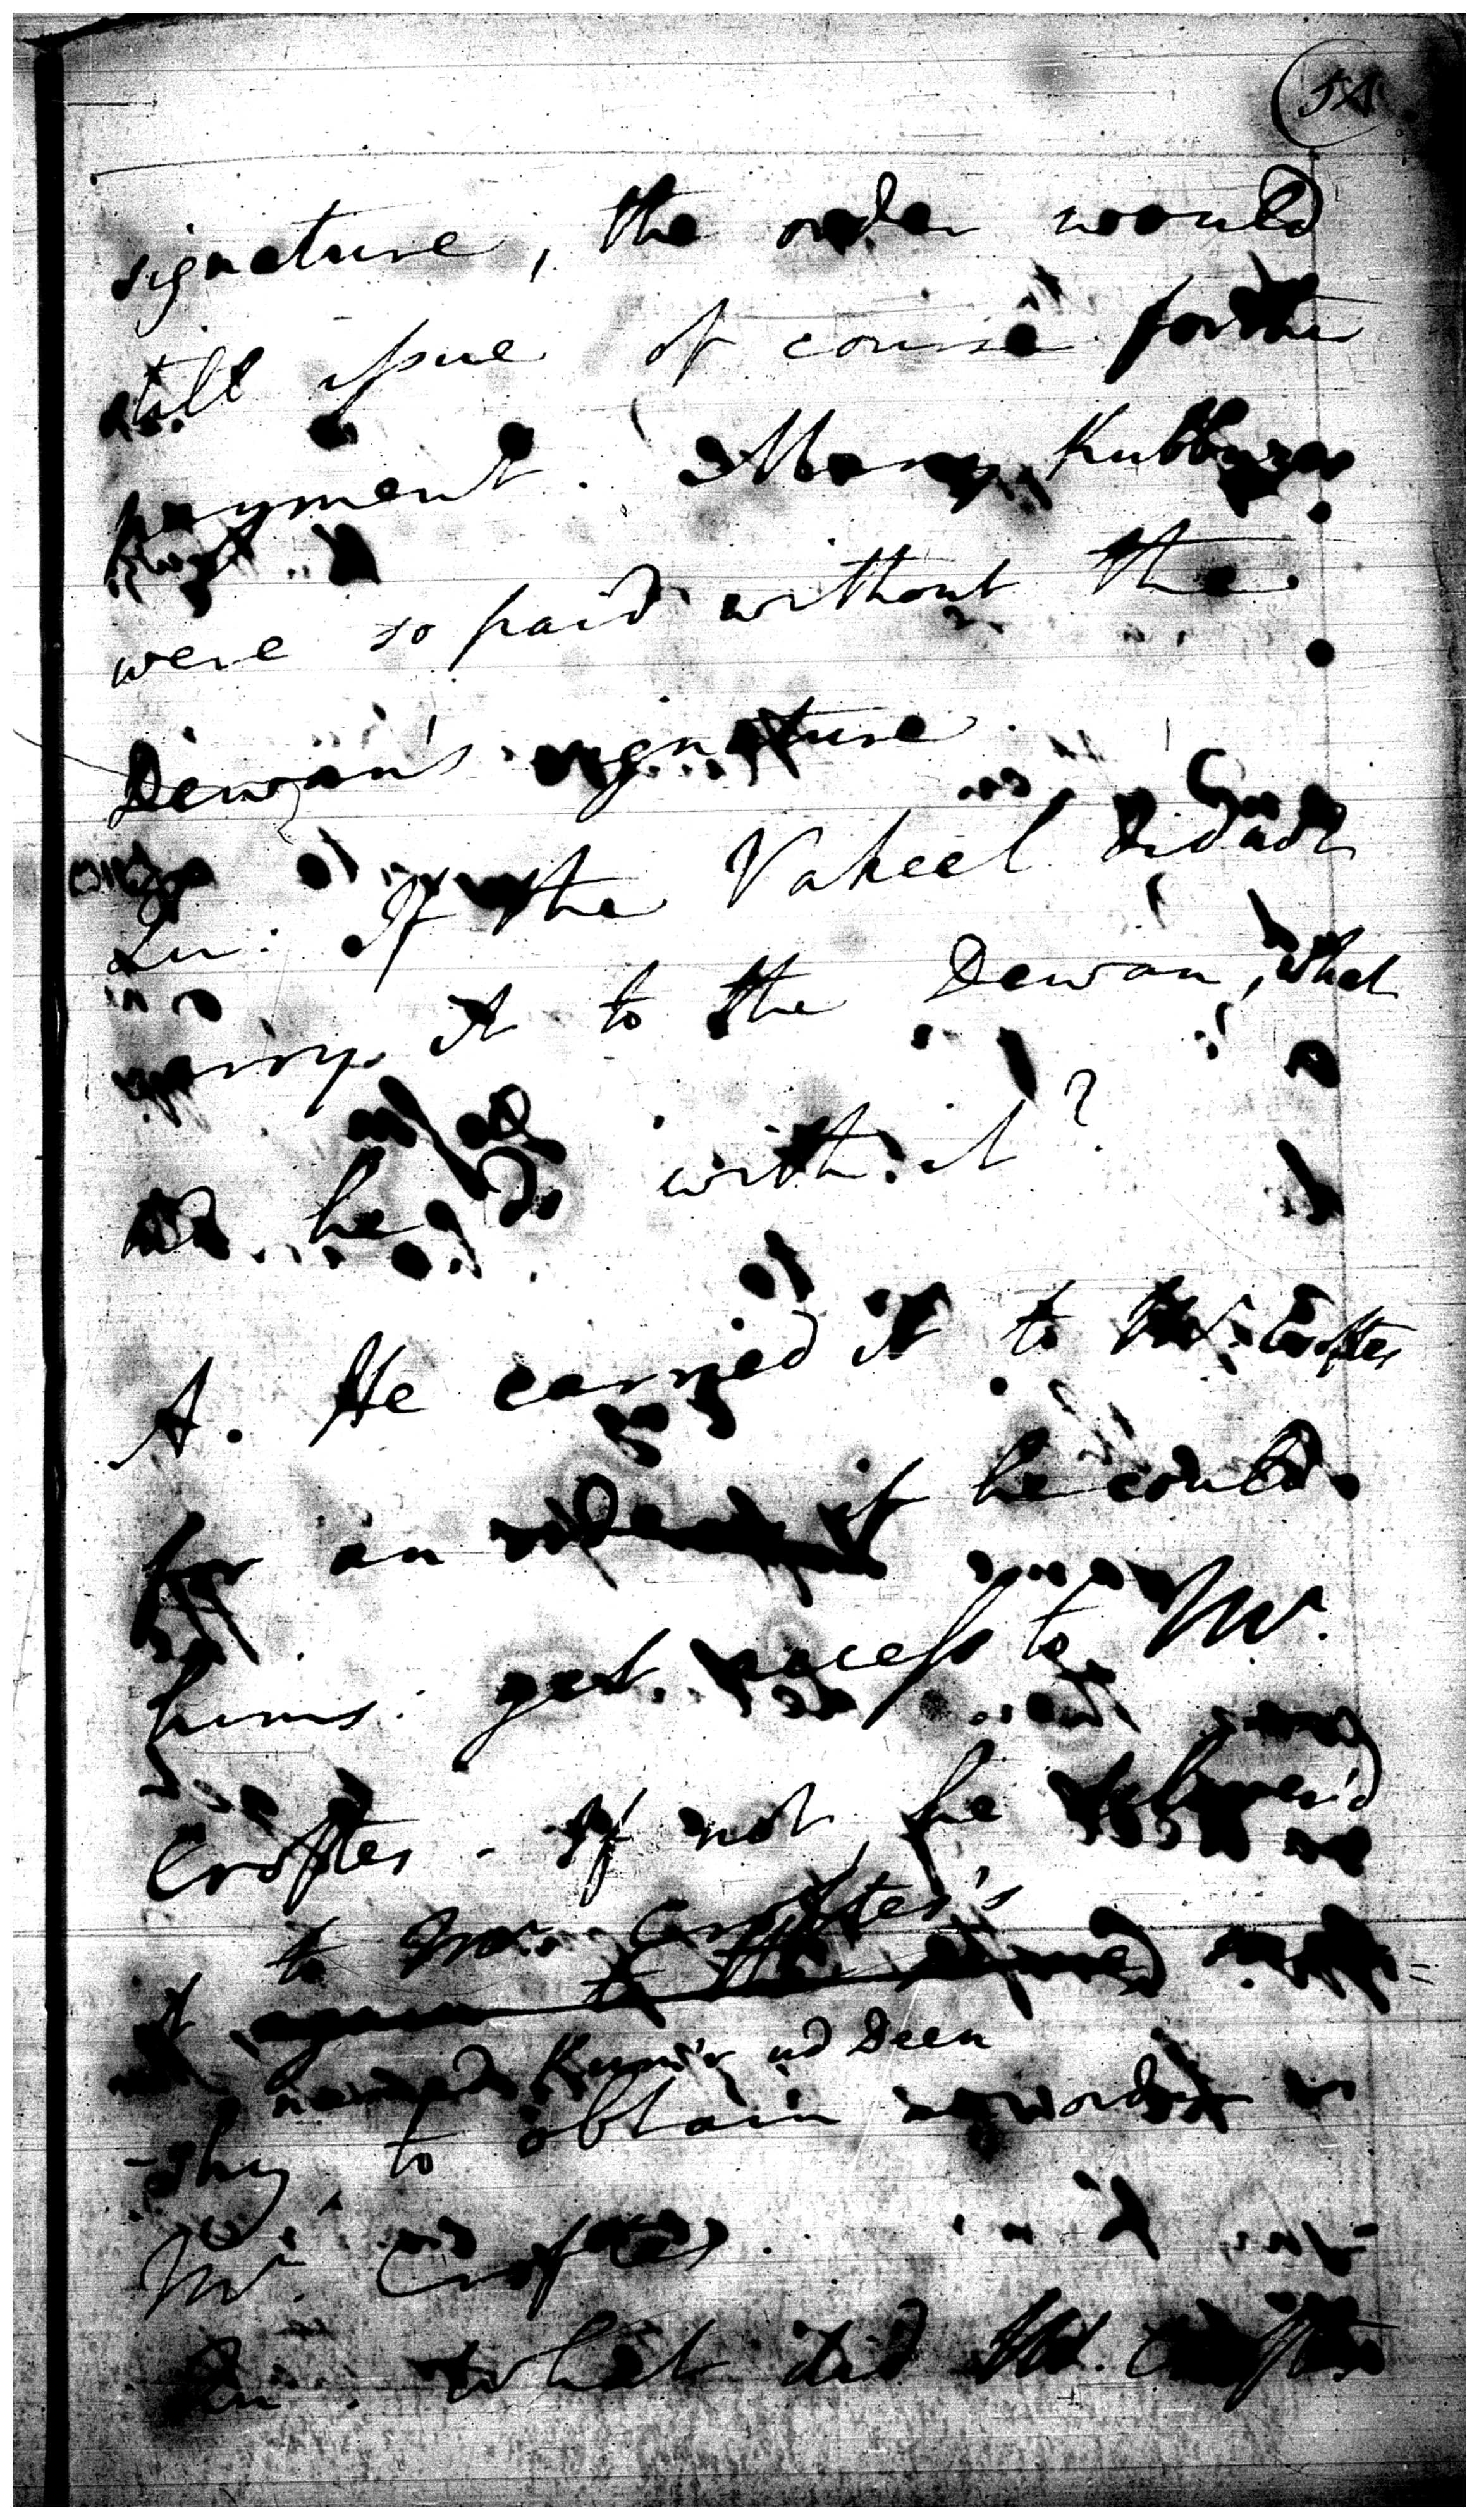 54
signature, the order would
still issue of course for the
payment. Many Kubbuzes
were so paid without the
Dewan's signature.
Qu: If the Vakeel did not
carry it to the Dewan, what
did he do with it?
A. He carried it to Mr. Croftes
for an order if he could
hims: get access to Mr.
Croftes. If not, he deliver'd
it to Mr. Croftes's
named Kumir ud Deen
to obtain
Mr. Croftes.
Qu. What did Mr. Croftes